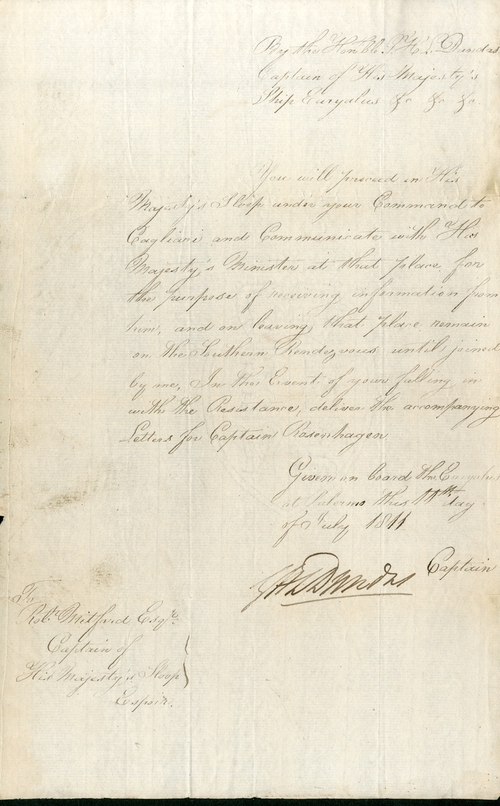 By the Honble. G. H. L. Dundas
Captain of His Majesty's
Ship Euryalus &c &c &c
You will proceed in His
Majesty's Sloop under your Command to
Cagliari and Communicate with His
Majesty's Minister at that place for
the purpose of receiving information from
him, and on leaving that place remain
on the Southern Rendezvous until joined
by me, In the Event of your falling in
with the Resistance, deliver the accompanying
Letters for Captain Rosenhagen
Given on board the Euryalus
at Palermo this 11th day
of July 1811
GHLDundas Captain
To
Robt. Mitford Esqre.
Captain of
His Majesty's Sloop
Espoir.